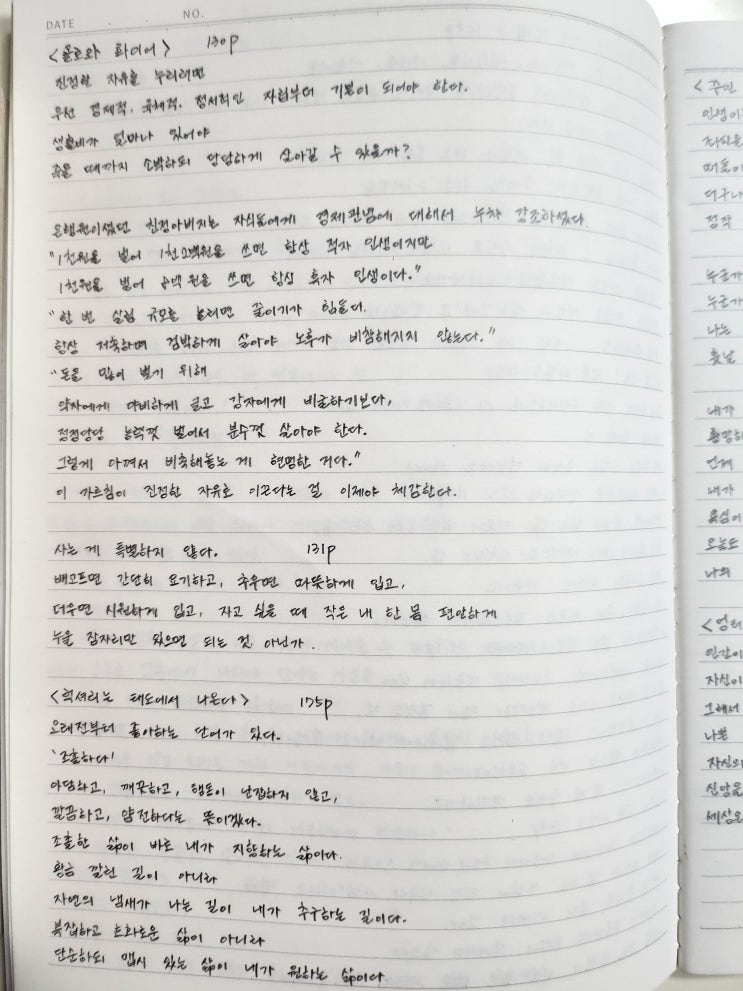 DATE . . NO.
<욜로와 화이어> 130p
진정한 자유를 누리려면
우선 경제적, 육체적, 정서적인 자립부터 기본이 되어야 한다.
생활비가 얼마나 있어야
죽을 때까지 소박하되 당당하게 살아갈 수 있을까?
은행원이셨던 친정아버지는 자식들에게 경제관념에 대해서 누차 강조하셨다.
"1천원을 벌어 1천2백원을 쓰면 항상 적자 인생이지만
1천원을 벌어 8백 원을 쓰면 항상 흑자 인생이다."
"한 번 살림 규모를 늘리면 줄이기가 힘들다.
항상 저축하며 검박하게 살아야 노후가 비참해지지 않는다."
"돈을 많이 벌기 위해
약자에게 야비하게 굴고 강자에게 비굴하기보다,
정정당당 능력껏 벌어서 분수껏 살아야 한다.
그렇게 아껴서 비축해놓는 게 현명한 거다."
이 가르침이 진정한 자유로 이끈다는 걸 이제야 체감한다.
사는 게 특별하지 않다. 131p
배고프면 간단히 요기하고, 추우면 따뜻하게 입고,
더우면 시원하게 입고, 자고 싶을 때 작은 내 한 몸 편안하게
누울 잠자리만 있으면 되는 것 아닌가.
<럭셔리는 태도에서 나온다> 175p
오래전부터 좋아하는 단어가 있다.
'조촐하다'
아담하고, 깨끗하고, 행동이 난잡하지 않고,
깔끔하고, 얌전하다는 뜻이겠다.
조촐한 삶이 바로 내가 지향하는 삶이다.
황금 깔린 길이 아니라
자연의 냄새가 나는 길이 내가 추구하는 길이다.
복잡하고 호화로운 삶이 아니라
단순하되 맵시 있는 삶이 내가 원하는 삶이다.
인생이
더구나
정작
누군가
누군가
나는
훗날
내가
언제
내가
욕심이
오늘도
나의
인간이
자신이
그래서
나쁜
자신의
신앙을
세상은